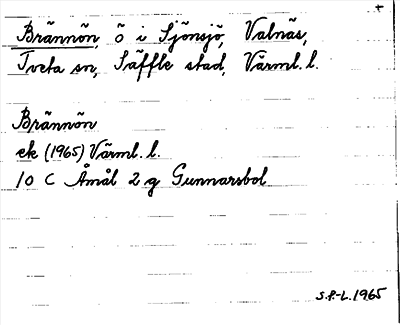 +
Brännön, ö i Sjönsjö, Valnäs,
Tveta sn, Säffle stad, Värml. l.
Brännön
ek (1965) Värml. l.
10 C Åmål 2 g Gunnarsbol
S.P.-L. 1965